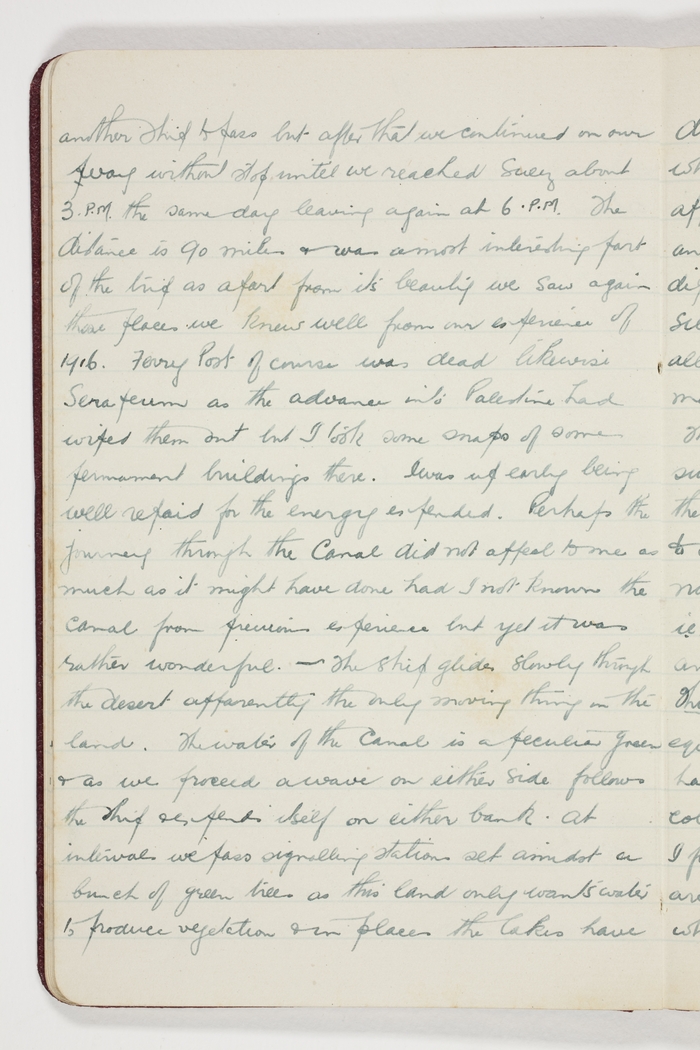 another ship to pass but after that we continued on our
way without stop until we reached Suez about
3.P.M. the same day leaving again at 6.P.M. The
distance is 90 miles & was a most interesting part
of the trip as apart from its beauty we saw again
those places we knew well from our experience of
1916. Ferry Post of course was dead likewise
Serapeum as the advance into Palestine had
wiped them out but I took some snaps of some
permament buildings there. I was up early being
well repaid for the energy expended. Perhaps the
journey through the Canal did not appeal to me as
much as it might have done had I not known the
Canal from previous experience but yet it was
rather wonderful. — The ship glides slowly through
the desert apparently the only moving thing on the
land. The water of the Canal is a peculiar green
& as we proceed a wave on either side follows
the ship & expends itself on either bank. At
intervals we pass signalling stations set amidst a
bunch of green trees as this land only wants water
to produce vegetation & in places the lakes have